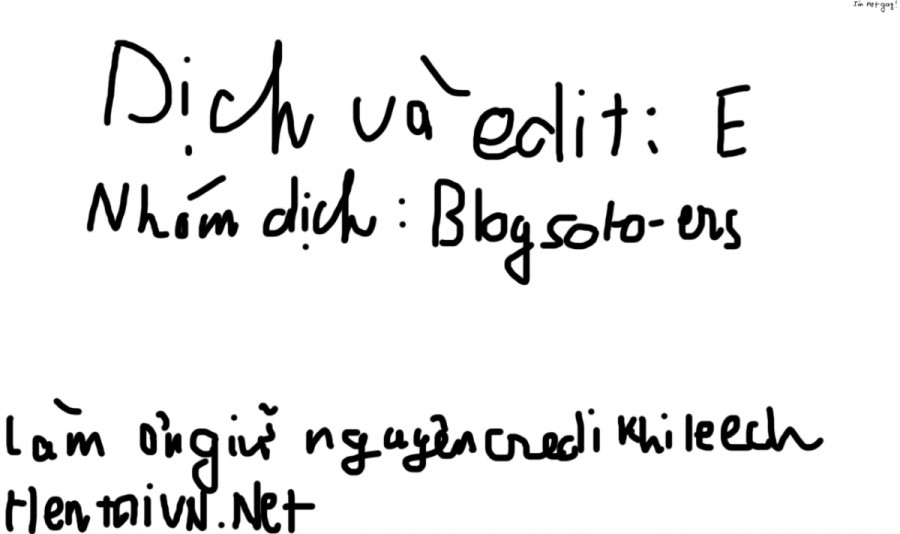 I'm not gay!
Dịch và edit: E
Nhóm dịch: Blogsoto-ers
Làm ơn giữ nguyên credi khi leech
HentaiVN.Net